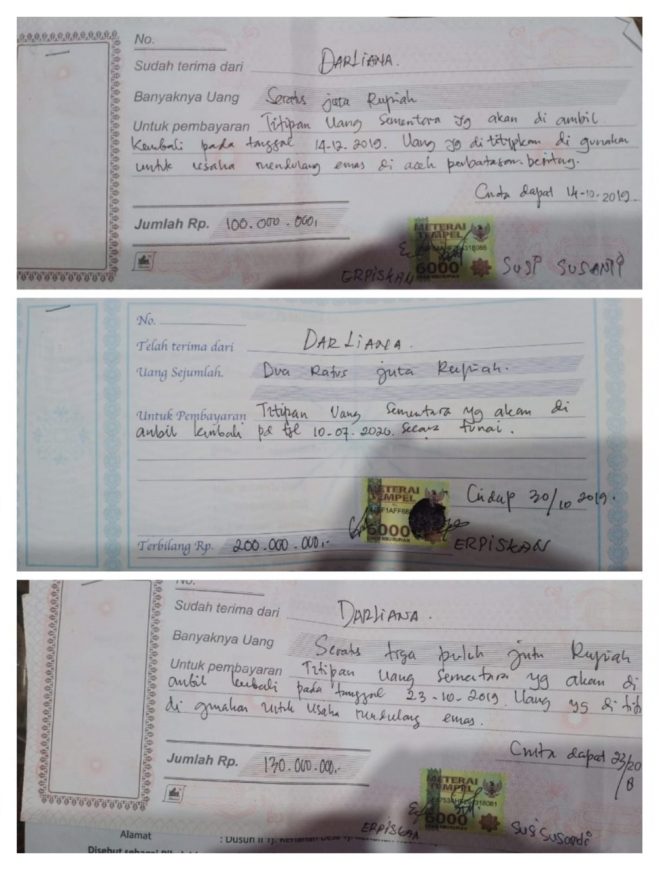 No.
Sudah terima dari DARLIANA.
Banyaknya Uang Seratus juta Rupiah
Untuk pembayaran Titipan Uang Sementara yg akan di ambil
kembali pada tanggal 14-12-2019. Uang yg di titipkan di gunakan
untuk usaha mendulang emas di aceh perbatasan
14-10-2019.
Jumlah Rp. 100.000.000,
METERAI
TEMPEL
6000
ERPISKAN
SUSI SUSANTI
No.
Telah terima dari DARLIANA.
Uang Sejumlah. Dua Ratus juta Rupiah.
Untuk Pembayaran Titipan Uang Sementara yg akan di
ambil kembali pd tgl 10-07-2020. Secara tunai.
30/10 2019.
METERAI
TEMPEL
6000
ERPISKAN
Terbilang Rp. 200.000.000,-
NO.
Sudah terima dari DARLIANA.
Banyaknya Uang Seratus tiga puluh juta Rupiah
Untuk pembayaran Titipan Uang Sementara yg akan di
ambil kembali pada tanggal 23-10-2019. Uang yg di
di gunakan untuk usaha mendulang emas.
Jumlah Rp. 130.000.000,-
METERAI
TEMPEL
6000
ERPISKAN
Alamat